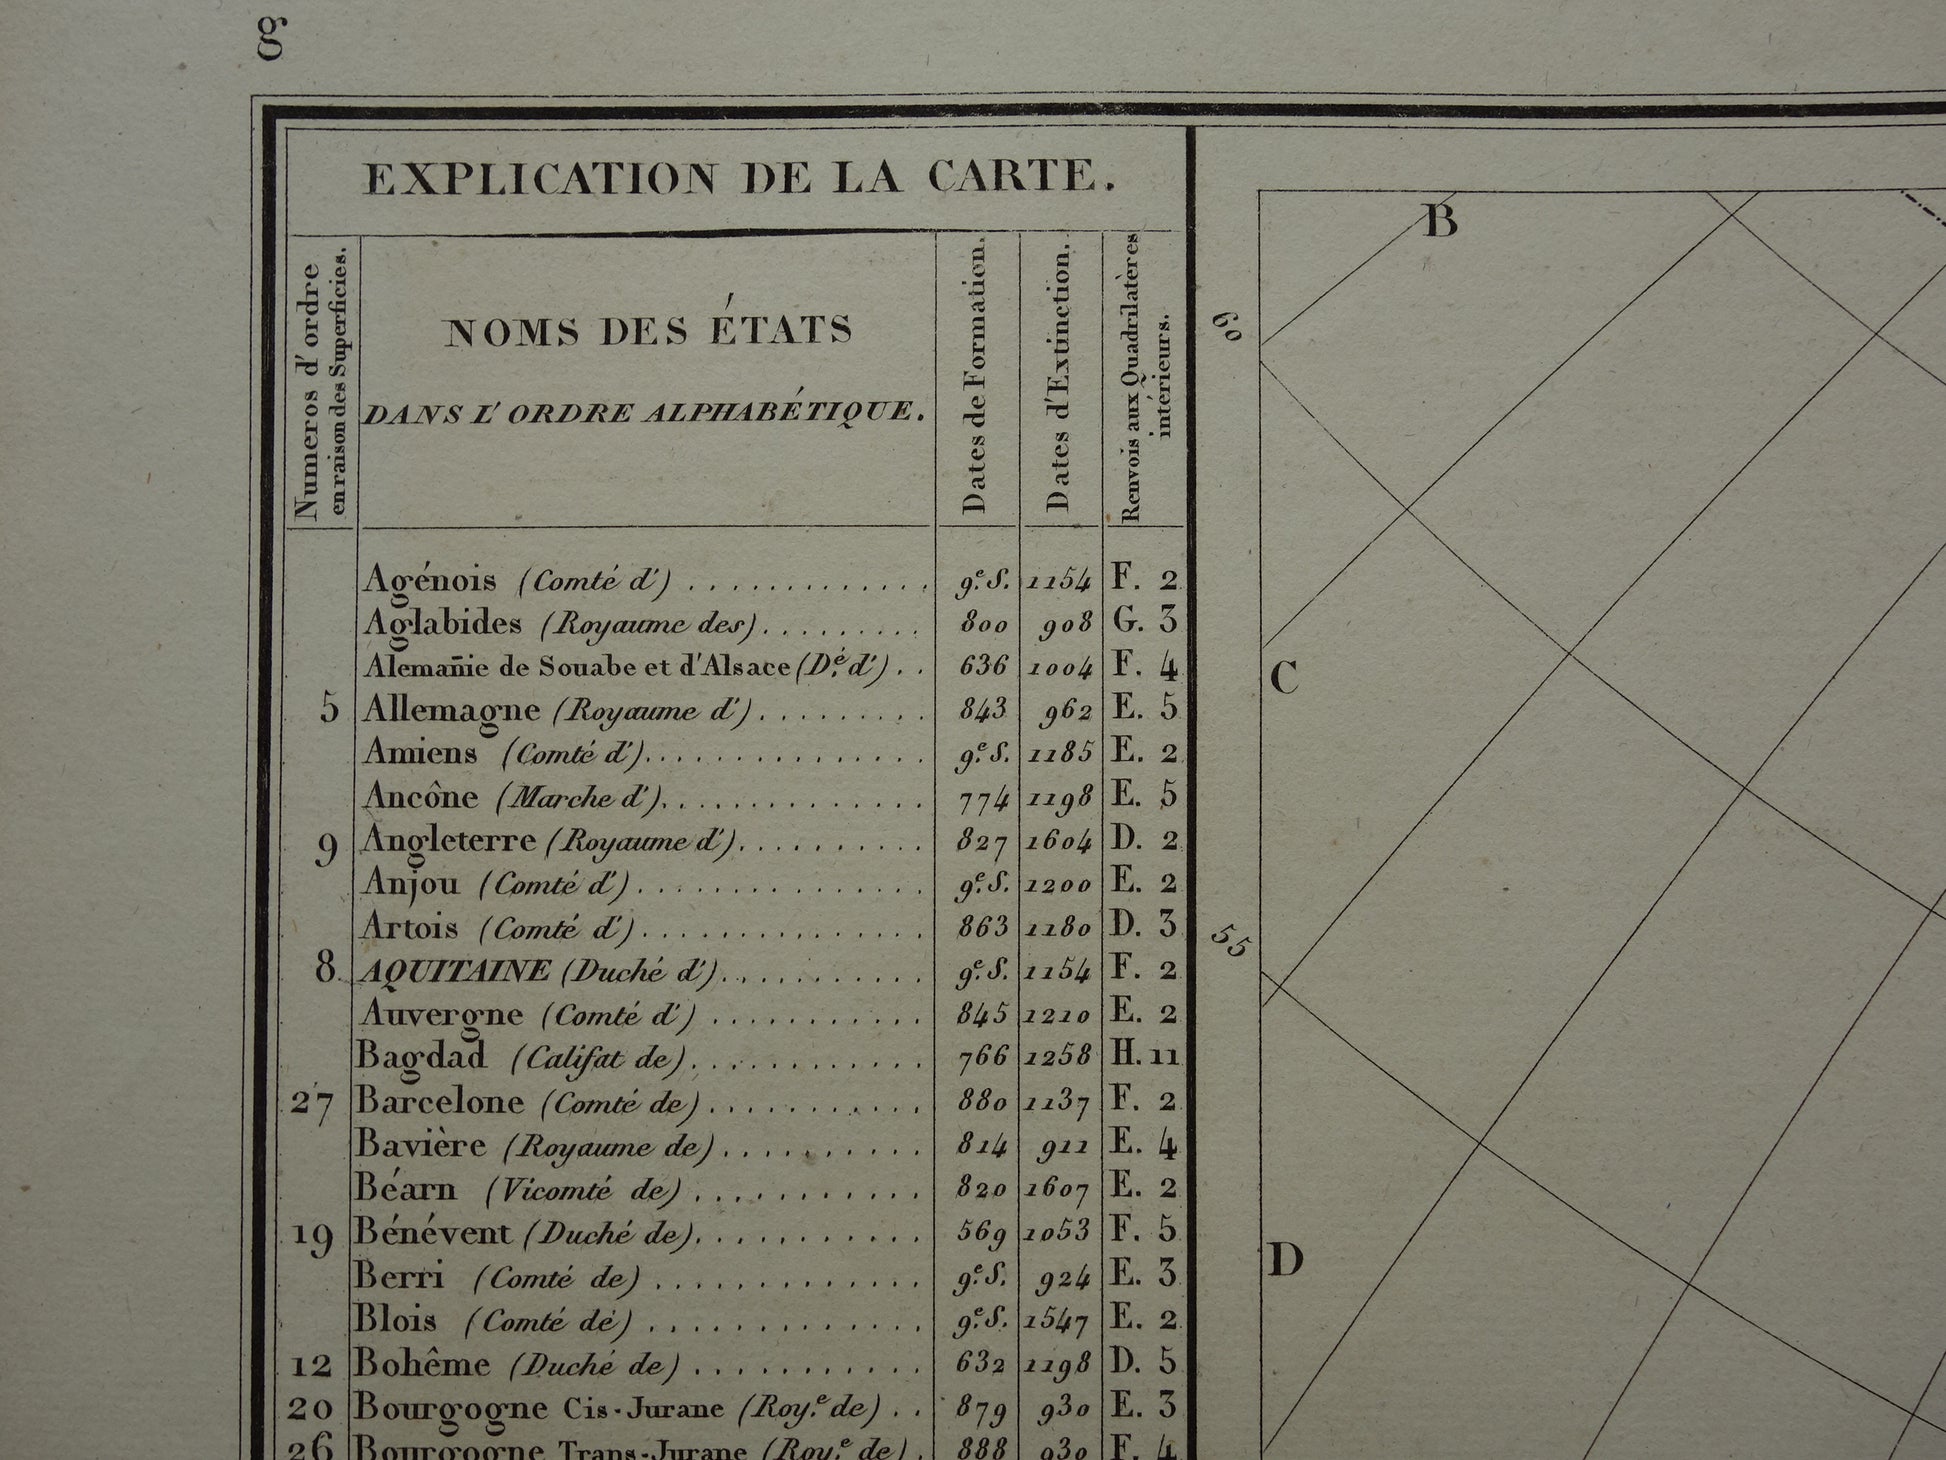 g
EXPLICATION DE LA CARTE.
Numeros d'ordre
en raison des Superficies.
NOMS DES ÉTATS
DANS L'ORDRE ALPHABÉTIQUE.
Dates de Formation.
Dates d'Extinction.
Renvois aux Quadrilatères
intérieurs.
Agénois (Comté d') . . . . . . . . . . . . . 9.e S. 1154 F. 2
Aglabides (Royaume des) . . . . . . . . . 800 908 G. 3
Alemañie de Souabe et d'Alsace (D.é d') . . 636 1004 F. 4
5 Allemagne (Royaume d') . . . . . . . . . 843 962 E. 5
Amiens (Comté d') . . . . . . . . . . . . . . . 9.e S. 1185 E. 2
Ancône (Marche d') . . . . . . . . . . . . . . 774 1198 E. 5
9 Angleterre (Royaume d') . . . . . . . . . . 827 1604 D. 2
Anjou (Comté d') . . . . . . . . . . . . . . . 9.e S. 1200 E. 2
Artois (Comté d') . . . . . . . . . . . . . . . 863 1180 D. 3
8 AQUITAINE (Duché d') . . . . . . . . . . 9.e S. 1154 F. 2
Auvergne (Comté d') . . . . . . . . . . . 845 1210 E. 2
Bagdad (Califat de) . . . . . . . . . . . . 766 1258 H. 11
27 Barcelone (Comté de) . . . . . . . . . . . 880 1137 F. 2
Bavière (Royaume de) . . . . . . . . . . 814 911 E. 4
Béarn (Vicomté de) . . . . . . . . . . . 820 1607 E. 2
19 Bénévent (Duché de) . . . . . . . . . . . 569 1053 F. 5
Berri (Comté de) . . . . . . . . . . . . . 9.e S. 924 E. 3
Blois (Comté dé) . . . . . . . . . . . . . 9.e S. 1547 E. 2
12 Bohême (Duché de) . . . . . . . . . . . 632 1198 D. 5
20 Bourgogne Cis-Jurane (Roy.e de) . . 879 930 E. 3
26 Bourgogne Trans-Jurane (Roy.e de) . 888 930 F. 4
B
60
C
55
D